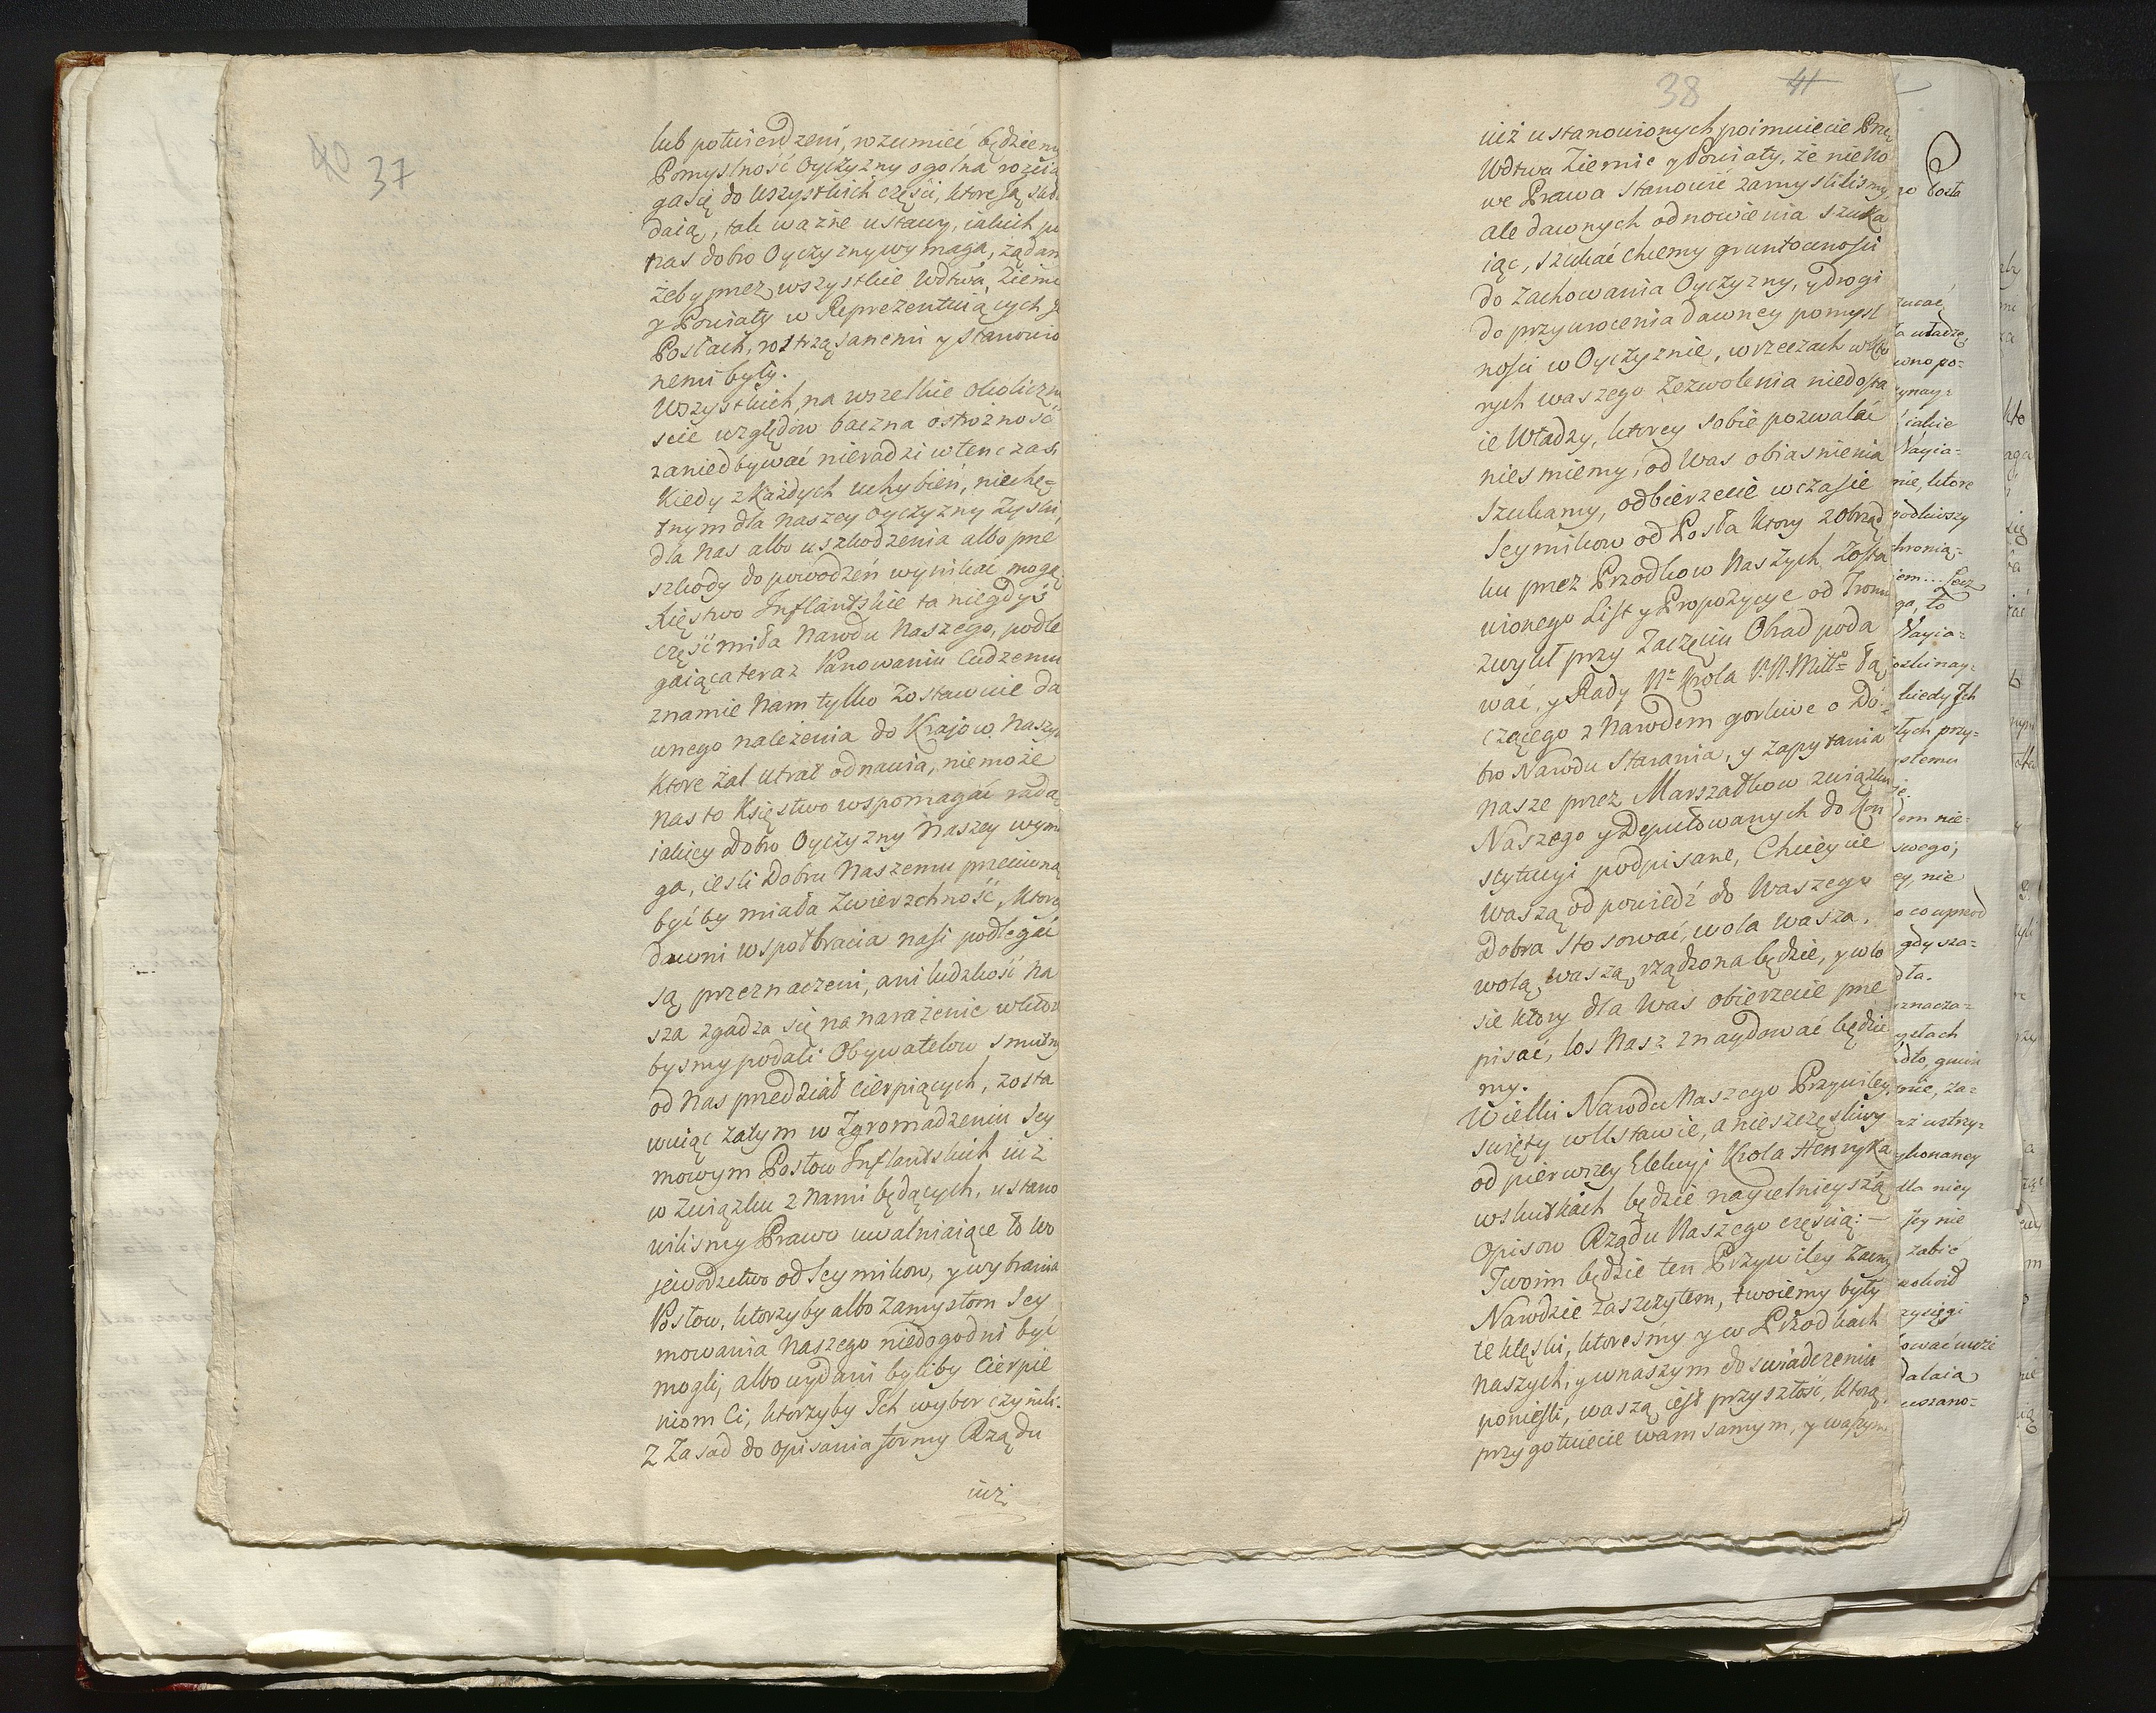 40 37
lub potwierdzeni, rozumieć będziemy
Pomyslność Oyczyzny ogolna rozcią
ga się do wszystkich części, ktore ją skła
daią, tak ważne ustawy, iakich po
nas dobro Oyczyzny wymaga, żądam
żeby przez wszystkie Wdtwa, Ziemie
y Powiaty w Reprezentuiących Je
Posłach, roztrząsanemi y stanowio
nemi były.
Wszystkich, na wszelkie okoliczno
scie względow baczna ostrożność
zaniedbywać nieradzi w ten czas
Kiedy z każdych uchybień, niechę=
tnym dla naszey Oyczyzny Zyski,
dla nas albo uszkodzenia albo prze
szkody do powodzeń wynikać mogą.
Xięstwo Inflantskie ta niegdyś
część miła Narodu Naszego, podle
gaiąca teraz Panowaniu Cudzemu
znamie Nam tylko zostawuie da
wnego należenia do Krajow Naszych
Ktore żal utrat odnawia, niemoże
nas to Xięstwo wspomagać radą
iakiey Dobro Oyczyzny Naszey wyma
ga, iesli Dobru Naszemu przeciwną
być by miała Zwierzchność, Ktorey
dawni wspołbracia nasi podlegać
są przeznaczeni, ani ludzkość Na
sza zgadza się na narażenie w ktore
bysmy podali Obywatelow smutny
od Nas przedział cierpiących, zosta
wuiąc zatym w Zgromadzeniu Sey
mowym Posłow Inflantskich iuż
w Związku z Nami będących, ustano
wilismy Prawo uwalniaiące to Wo
jewodztwo od Seymikow, y wybrania
Posłow, ktorzyby albo Zamysłom Sey
mowania Naszego niedogodni być
mogli, albo wydani byliby Cierpie
niom Ci, ktorzyby Ich wybor czynili.
Z Zasad do opisania formy Rządu
iuż
38 41
iuż ustanowionych poimuiecie Prze
Wdtwa Ziemie y Powiaty, że nie No
we Prawa stanowić zamyslilismy,
ale dawnych odnowienia szuka
iąc, szukać chcemy gruntowności
do Zachowania Oyczyzny, y drogi
do przywrocenia dawney pomysl
ności w Oyczyznie, w rzeczach w kto
rych waszego Zezwolenia niedosta
ie Władzy, ktorey sobie pozwalać
niesmiemy, od Was obiasnienia
Szukamy, odbierzecie w czasie
Seymikow od Posła Ktory z obrząd
ku przez Przodkow Naszych zosta
wionego List y Propozycye od Tronu
zwykł przy Zaczęciu Obrad poda
wać, y Rady Nº Krola P. N. Miłłº łą
czącego z Narodem gorliwe o Do=
bro Narodu Starania, y Zapytania
nasze przez Marszałkow związku
Naszego y Deputowanych do Kon
stytucyi podpisane, Chcieycie
Waszą odpowiedź do Waszego
Dobra stosować, wola wasza,
wolą waszą, rządzona będzie, y w lo
sie ktory dla Was obierzecie prze
pisać, los Nasz znaydować będzie
my.
Wielki Narodu Naszego Przywiley,
swięty w Ustawie, a nieszczęśliwy
od pierwszey Elekcyi Krola Henryka
w skutkach będzie naycelnieyszą
Opisow Rządu Naszego częścią: —
Twoim będzie ten Przywiley Zacny
Narodzie Zaszczytem, twoiemy były
te klęski, ktoreśmy y w Przodkach
naszych, y w naszym doswiadczeniu
poniesli, waszą iest przyszłość, ktorą
przygotuiecie wam samym, y waszym